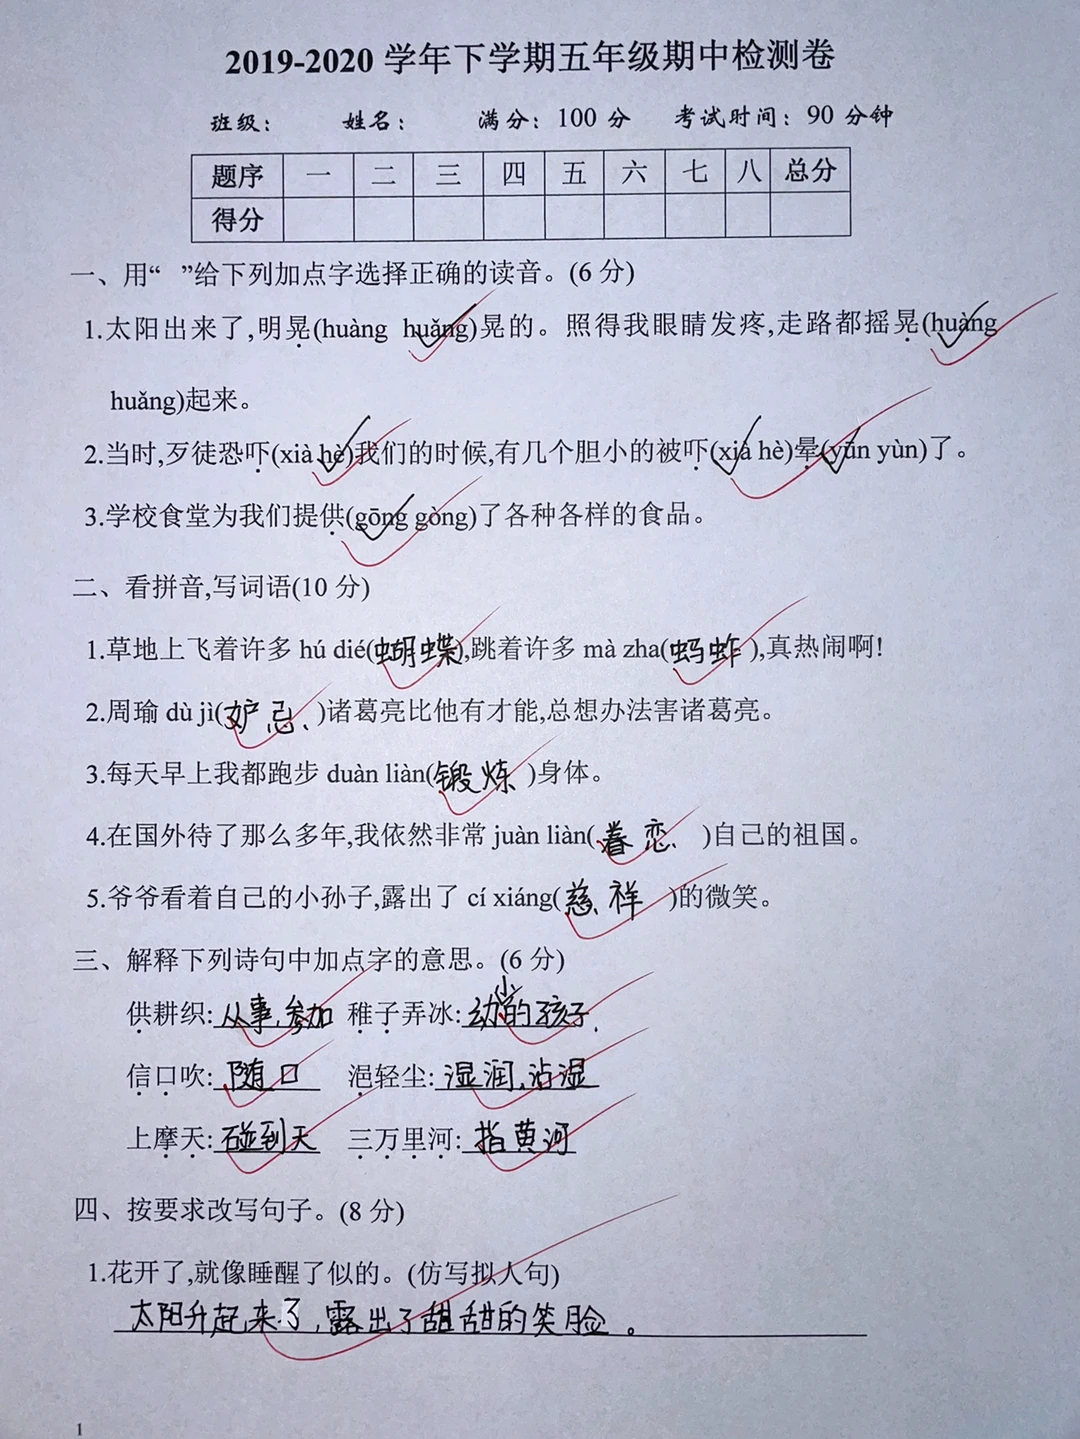 2019-2020 学年下学期五年级期中检测卷
班级： 姓名： 满分：100 分 考试时间：90 分钟
题序 一 二 三 四 五 六 七 八 总分
得分
一、用“ ”给下列加点字选择正确的读音。(6 分)
1.太阳出来了,明晃(huàng huǎng)晃的。照得我眼睛发疼,走路都摇晃(huàng
huǎng)起来。
2.当时,歹徒恐吓(xià hè)我们的时候,有几个胆小的被吓(xià hè)晕(yūn yùn)了。
3.学校食堂为我们提供(gōng gòng)了各种各样的食品。
二、看拼音,写词语(10 分)
1.草地上飞着许多 hú dié(蝴蝶),跳着许多 mà zha(蚂蚱),真热闹啊!
2.周瑜 dù jì(妒忌)诸葛亮比他有才能,总想办法害诸葛亮。
3.每天早上我都跑步 duàn liàn(锻炼)身体。
4.在国外待了那么多年,我依然非常 juàn liàn(眷恋)自己的祖国。
5.爷爷看着自己的小孙子,露出了 cí xiáng(慈祥)的微笑。
三、解释下列诗句中加点字的意思。(6 分)
供耕织:从事,参加 稚子弄冰:幼小的孩子.
信口吹:随口 浥轻尘:湿润,沾湿
上摩天:碰到天 三万里河:指黄河
四、按要求改写句子。(8 分)
1.花开了,就像睡醒了似的。(仿写拟人句)
太阳升起来了,露出了甜甜的笑脸。
1